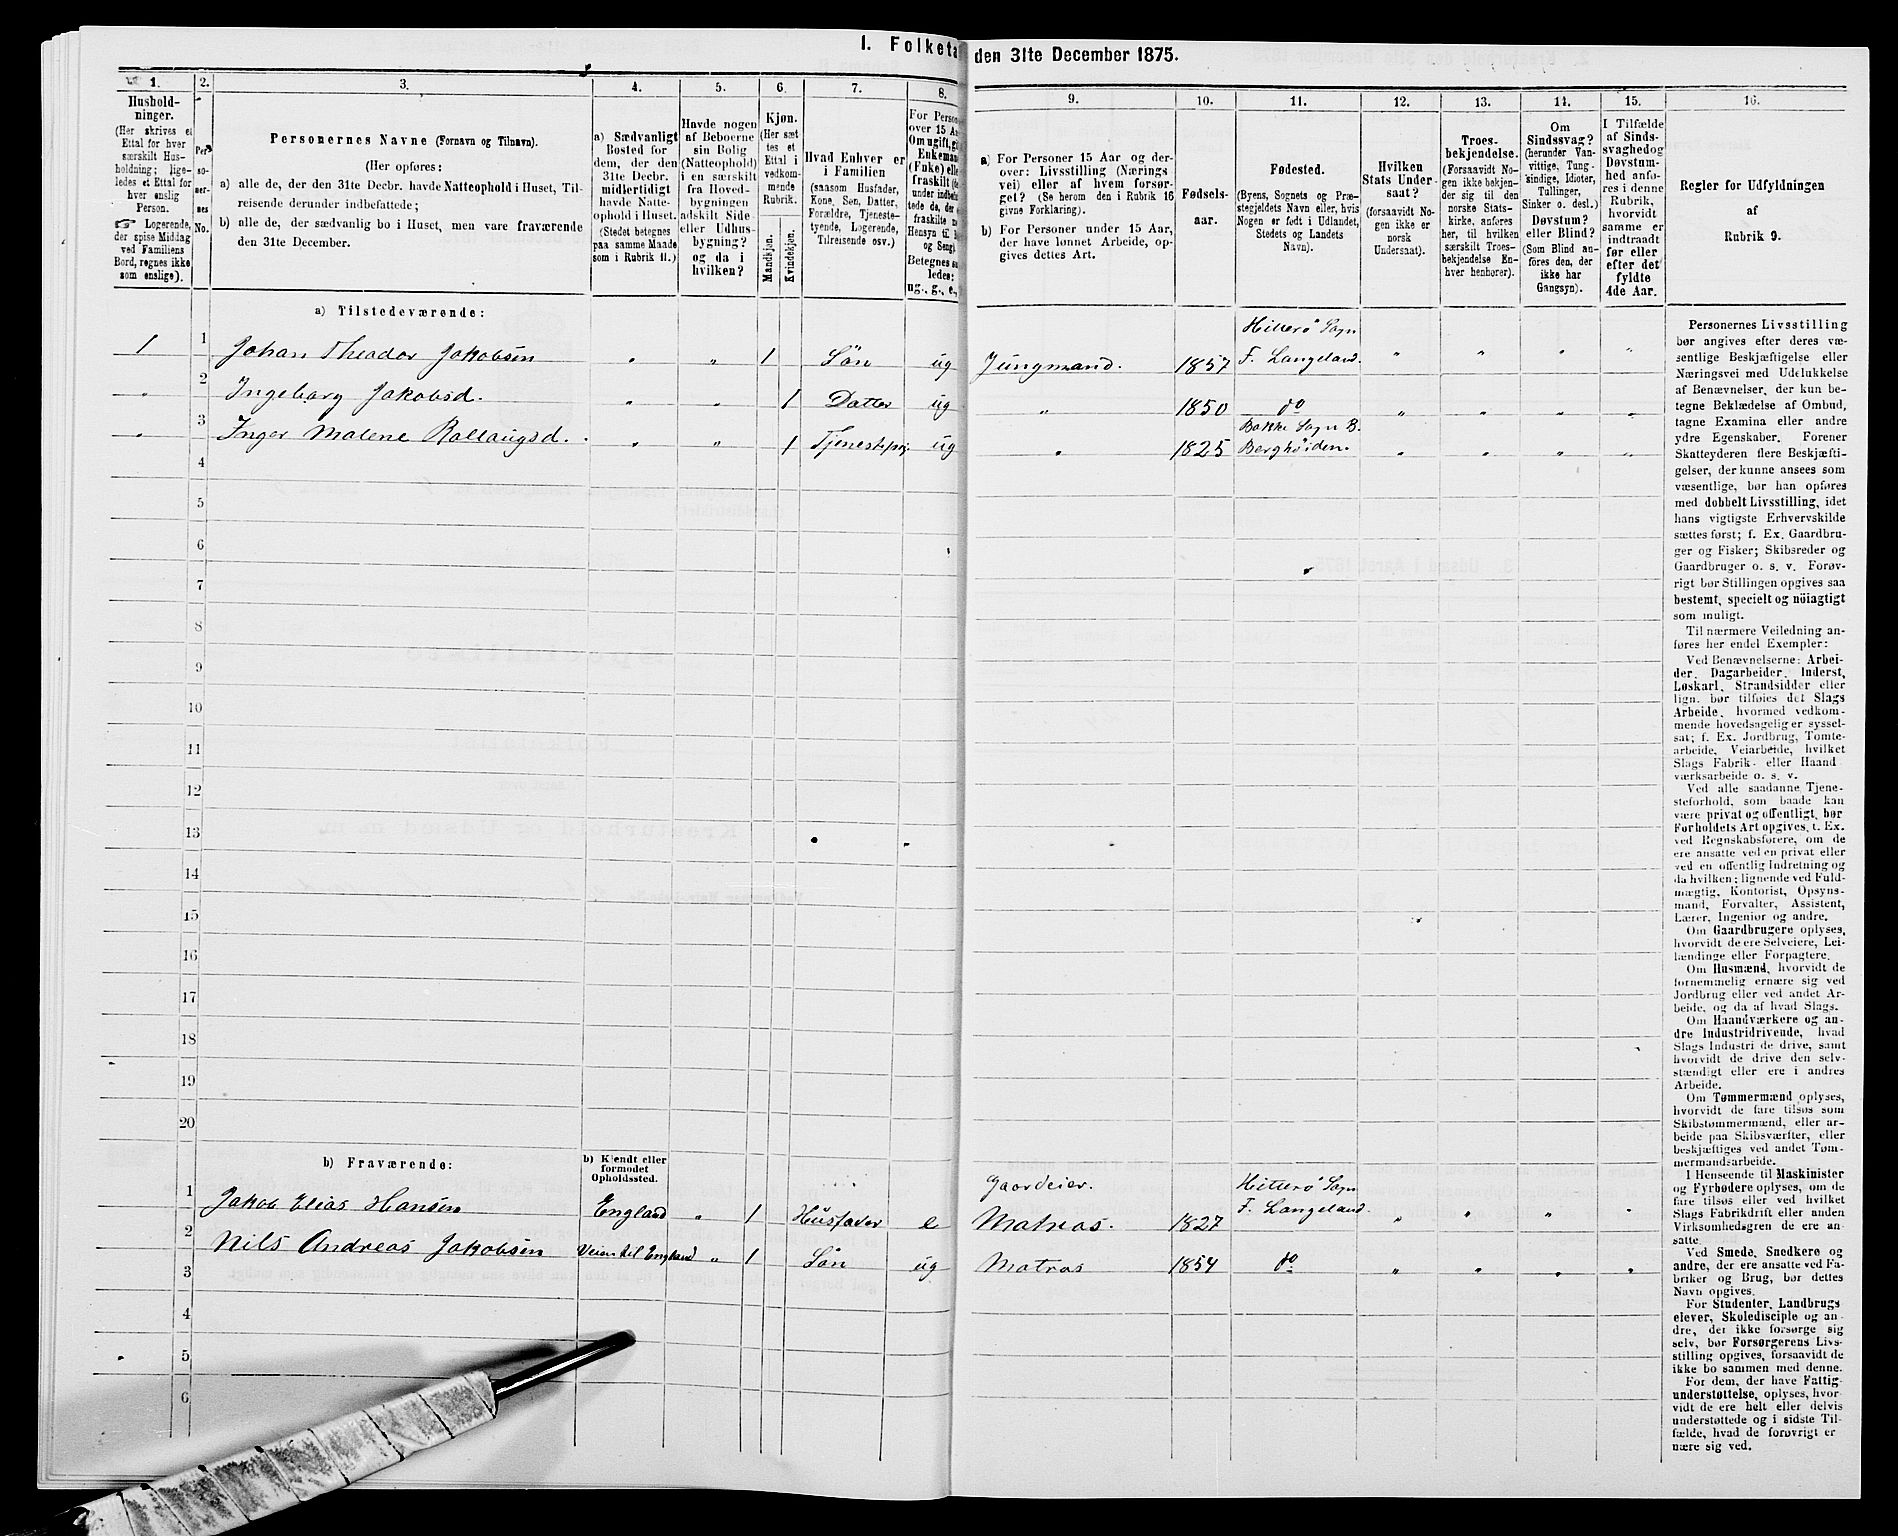 I. Folketæ
den 31te December 1875.
1.
Hushold-
ninger.
(Her skrives et
Ettal for hver
særskilt Hus-
holdning; lige-
ledes et Ettal for
hver enslig
Person.
☞ Logerende,
der spise Middag
ved Familiens
Bord, regnes ikke
som enslige).
2.
Per-
so-
ner-
nes
No.
3.
Personernes Navne (Fornavn og Tilnavn).
(Her opføres:
a) alle de, der den 31te Decbr. havde Natteophold i Huset, Til-
reisende derunder indbefattede;
b) alle de, der sædvanlig bo i Huset, men vare fraværende
den 31te December.
4.
a) Sædvanligt
Bosted for
dem, der den
31te Decbr.
midlertidigt
havde Natte-
ophold i Huset.
(Stedet betegnes
paa samme Maade
som i Rubrik 11.)
5.
Havde nogen
af Beboerne
sin Bolig
(Natteophold)
i en særskilt
fra Hoved-
bygningen
adskilt Side-
eller Udhus-
bygning?
og da i
hvilken?
6.
Kjøn.
(Her sæt-
tes et
Ettal i
vedkom-
mende
Rubrik.
Mandkjøn.
Kvindekjøn.
7.
Hvad Enhver er
i Familien
(saasom Husfader,
Kone, Søn, Datter,
Forældre, Tjeneste-
tyende, Logerende,
Tilreisende osv.)
8.
For Person
over 15 Aa
Om ugift, gi
Enkeman
(Enke) elle
fraskilt (
under indb
tede de, der
fraskilte
Hensyn til
og Seng
Betegnes s
ledes:
ug., g., e.,
9.
a) For Personer 15 Aar og der-
over: Livsstilling (Nærings-
vei) eller af hvem forsør-
get? (Se herom den i Rubrik 16
givne Forklaring).
b) For Personer under 15 Aar,
der have lønnet Arbeide, op-
gives dettes Art.
10.
Fødsels-
aar.
11.
Fødested.
(Byens, Sognets og Præ-
stegjeldets Navn eller, hvis
Nogen er født i Udlandet,
Stedets og Landets
Navn).
12.
Hvilken
Stats Under-
saat?
(forsaavidt No-
gen ikke er
norsk
Undersaat).
13.
Troes-
bekjendelse.
(Forsaavidt No-
gen ikke bekjen-
der sig til den
norske Stats-
kirke, anføres
her, til hvilken
særskilt Troes-
bekjendelse En-
hver henhører).
14.
Om
Sindssvag?
(herunder Van-
vittige, Tung-
sindige, Idioter,
Tullinger,
Sinker o. desl.)
Døvstum?
eller Blind?
(Som Blind an-
føres den, der
ikke har
Gangsyn).
15.
I Tilfælde
af Sinds-
svaghed og
Døvstum-
hed anfø-
res i denne
Rubrik,
hvorvidt
samme er
indtraadt
før eller
efter det
fyldte
4de Aar.
16.
Regler for Udfyldningen
af
Rubrik 9.
a) Tilstedeværende:
Hitterø Sogn
1 1 Johan Theodor Jakobsen „ „ 1 Søn ug Jungmand. 1857 F. Langeland. „ „ „ „
„ 2 Ingeborg Jakobsd. „ „ 1 Datter ug „ 1850 do „ „ „ „
Bakke Sogn B.
„ 3 Inger Malene Rallaugsd. „ „ 1 Tjenestepig. ug „ 1825 Berghøiden. „ „ „ „
4
5
6
7
8
9
10
11
12
13
14
15
16
17
18
19
20
b) Fraværende:
b) Kjendt eller
formodet
Opholdssted.
Gaardeier. Hitterø Sogn
1 Jakob Elias Hansen England „ 1 Husfader e Matros. 1827 F. Langeland. „ „ „ „
2 Nils Andreas Jakobsen Veien til England „ 1 Søn ug Matros 1854 do „ „ „ „
3
4
5
6
Personernes Livsstilling
bør angives efter deres væ-
sentlige Beskjæftigelse eller
Næringsvei med Udelukkelse
af Benævnelser, der kun be-
tegne Beklædelse af Ombud,
tagne Examina eller andre
ydre Egenskaber. Forener
Skatteyderen flere Beskjæfti-
gelser, der kunne ansees som
væsentlige, bør han opføres
med dobbelt Livsstilling, idet
hans vigtigste Erhvervskilde
sættes først; f. Ex. Gaardbru-
ger og Fisker; Skibsreder og
Gaardbruger o. s. v. Forøv-
rigt bør Stillingen opgives saa
bestemt, specielt og nöiagtigt
som muligt.
Til nærmere Veiledning an-
føres her endel Exempler:
Ved Benævnelserne: Arbei-
der, Dagarbeider, Inderst,
Løskarl, Strandsidder eller
lign. bør tilføies det Slags
Arbeide, hvormed vedkom-
mende hovedsagelig er syssel-
sat; f. Ex. Jordbrug, Tomte-
arbeide, Veiarbeide, hvilket
Slags Fabrik- eller Haand-
værksarbeide o. s. v.
Ved alle saadanne Tjene-
steforhold, som baade kan
være privat og offentligt, bør
Forholdets Art opgives, t. Ex.
ved Regnskabsførere, om de
ere ansatte ved en privat eller
ved en offentlig Indretning og
da hvilken; lignende ved Fuld-
mægtig, Kontorist, Opsyns-
mand, Forvalter, Assistent,
Lærer, Ingeniør og andre.
Om Gaardbrugere oplyses,
hvorvidt de ere Selveiere, Lei-
lændinge eller Forpagtere.
Om Husmænd, hvorvidt de
fornemmelig ernære sig ved
Jordbrug eller ved andet Ar-
beide, og da af hvad Slags.
Om Haandværkere og an-
dre Industridrivende, hvad
Slags Industri de drive, samt
hvorvidt de drive den selv-
stændigt eller ere i andres
Arbeide.
Om Tømmermænd oplyses,
hvorvidt de fare tilsøs som
Skibstømmermænd, eller ar-
beide paa Skibsværfter, eller
beskjæftiges ved andet Tøm-
mermandsarbeide.
I Henseende til Maskinister
og Fyrbødere oplyses, om de
fare tilsøs eller ved hvilket
Slags Fabrikdrift eller anden
Virksomhedsgren de ere an-
satte.
Ved Smede, Snedkere og
andre, der ere ansatte ved Fa-
briker og Brug, bør dettes
Navn opgives.
For Studenter, Landbrugs-
elever, Skoledisciple og an-
dre, der ikke forsørge sig
selv, bør Forsørgerens Livs-
stilling opgives, forsaavidt de
ikke bo sammen med denne.
For dem, der have Fattig-
understøttelse, oplyses, hvor-
vidt de ere helt eller delvis
understøttede og i sidste Til-
fælde, hvad de forøvrigt er-
nære sig ved.